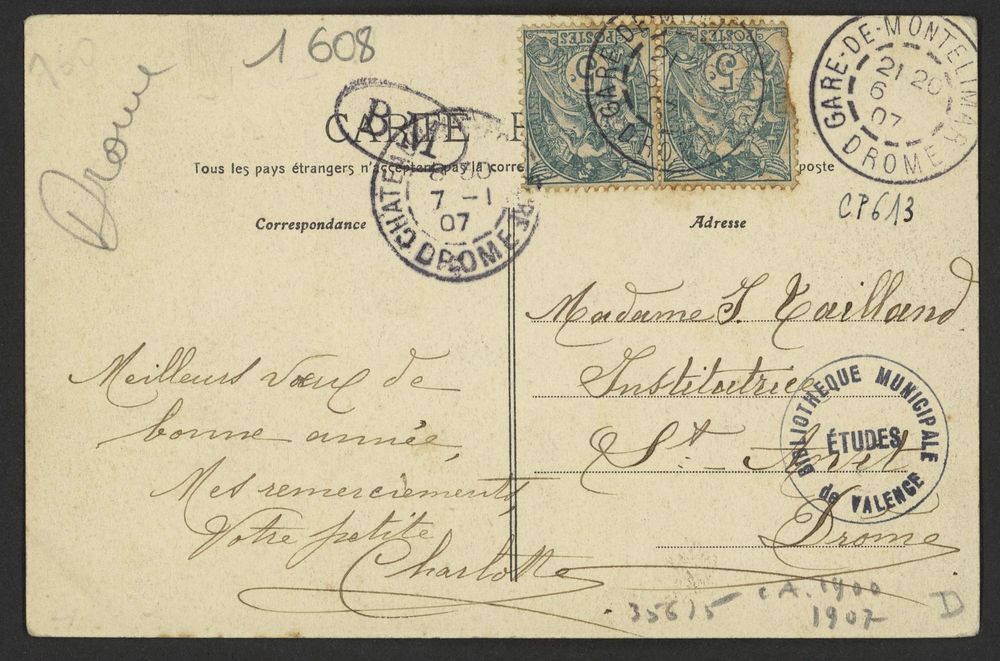 760
1 608
Drome
B.M
CARTE P
Tous les pays étrangers n'acceptent pas la corre poste
Correspondance
Adresse
CHATE DROME
7 - 1
07
POSTES
5
POSTES
5
GARE-DE-MONTELIMAR
21 20
6
07
DROME
CP613
Madame S. Tailland
Institutrice
St-Avit
Drome
Meilleurs vœux de
bonne année,
Mes remerciements
Votre petite
Charlotte
BIBLIOTHEQUE MUNICIPALE
ÉTUDES
de VALENCE
35615 CA. 1900
1907
D